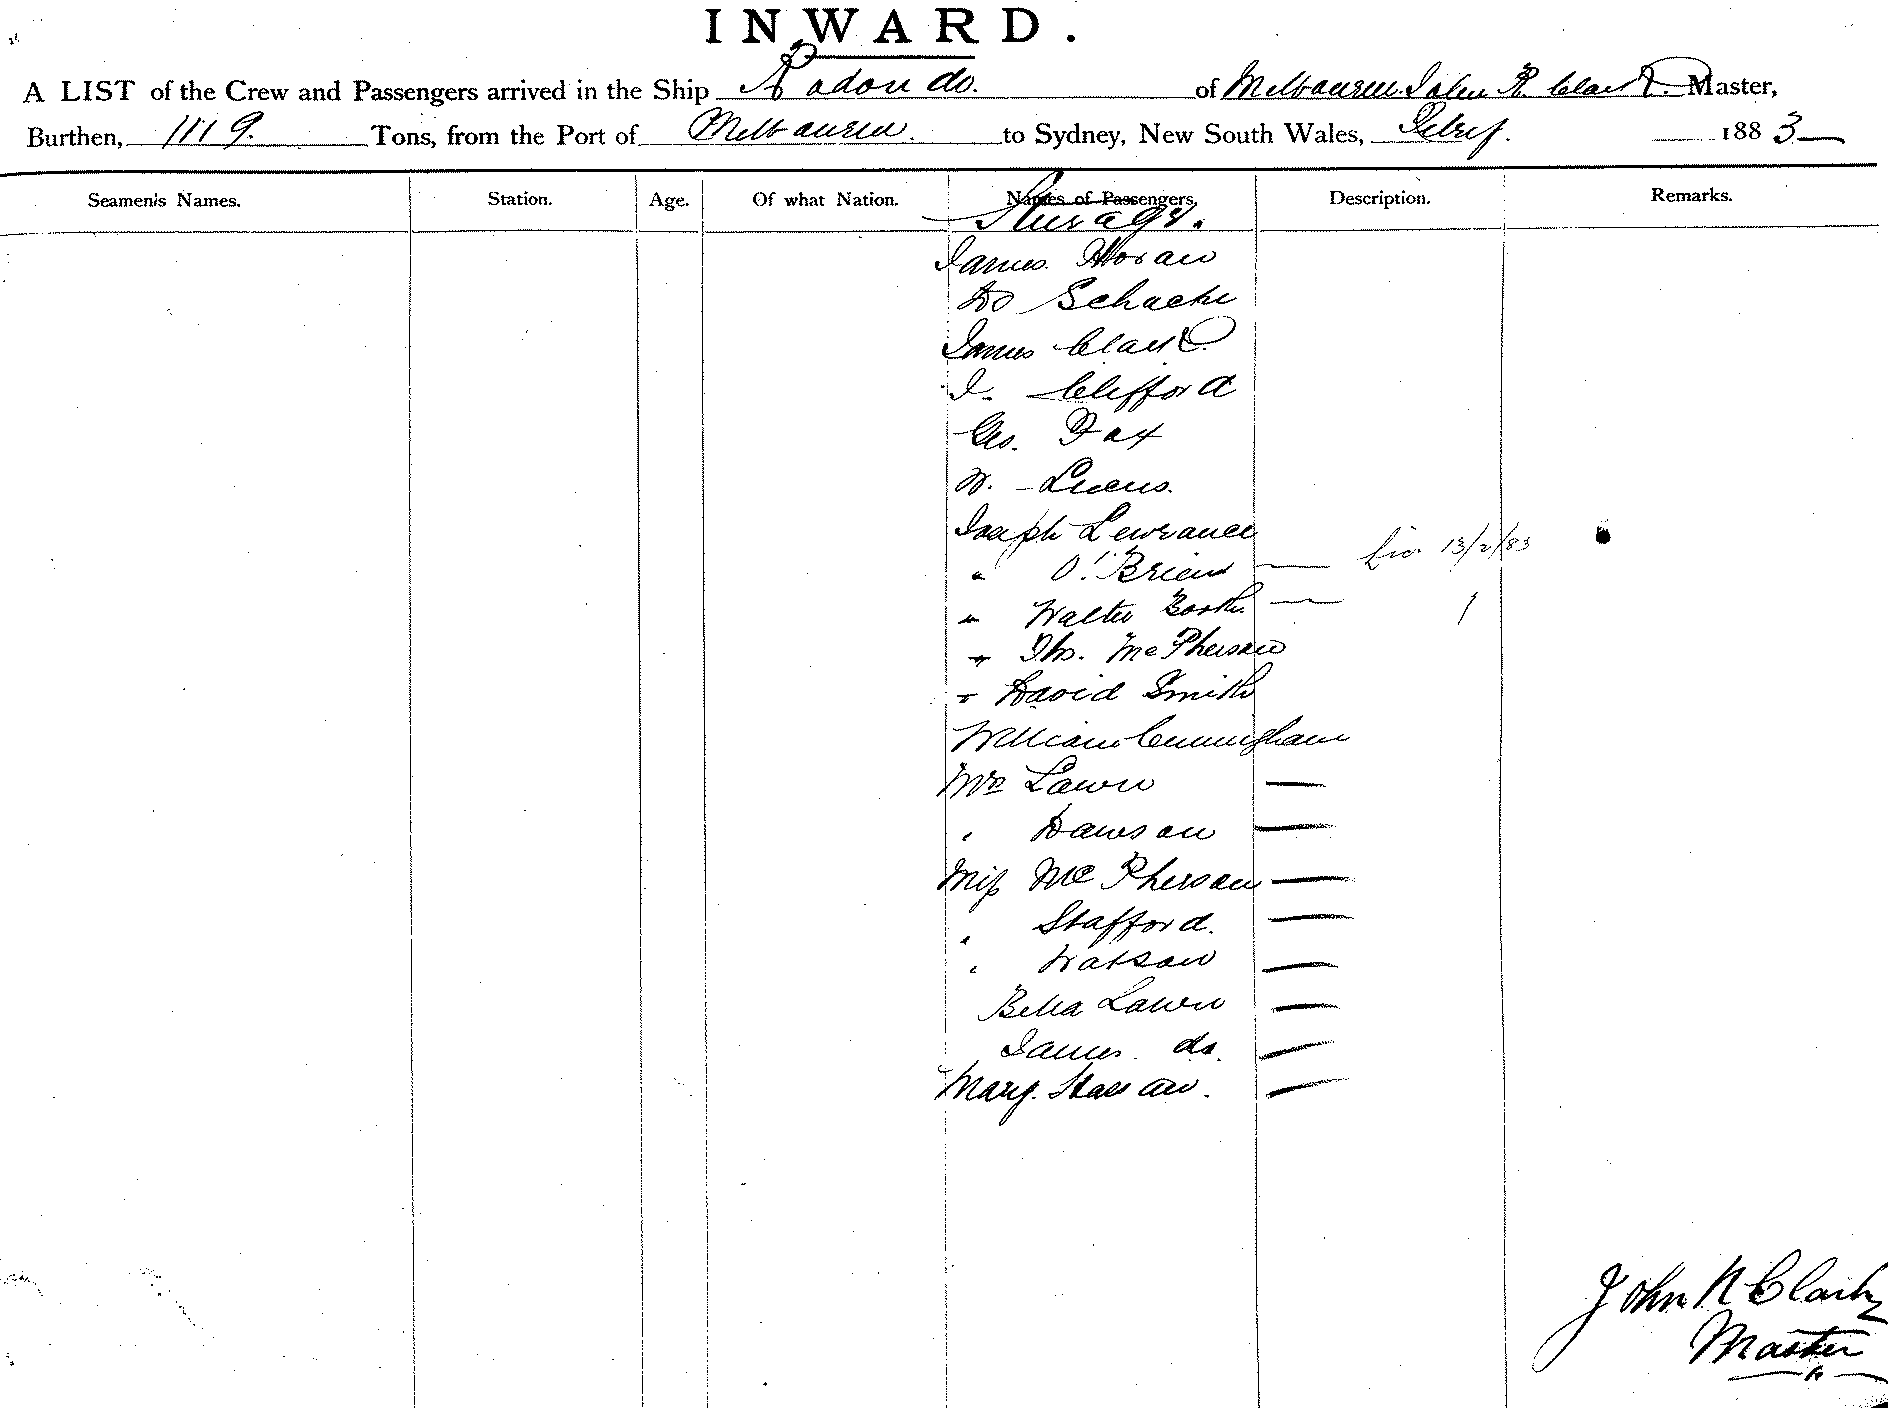 INWARD.
A LIST of the Crew and Passengers arrived in the Ship Rodondo. of Melbourne John R Clark Master,
Burthen, 1119. Tons, from the Port of Melbourne. to Sydney, New South Wales, 188 3
Seamen's Names. Station. Age. Of what Nation. Names of Passengers. Description. Remarks.
Steerage.
James Moran
Do
James Clark
J. Clifford
Geo. Fox
W.
Joseph Lawrance
" O'Brien 13/2/83
" Walter Booth
" Thos. McPherson
" David Smith
William Cunningham
Mrs Lawn
" Dawson
Miss McPherson
" Stafford.
" Watson
Bella Lawn
James do.
Mary.
John R Clark
Master